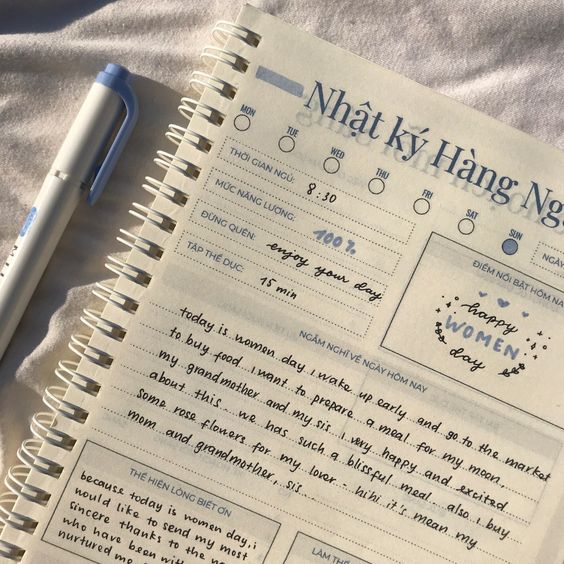 Nhật ký Hàng Ng
MON TUE WED THU FRI SAT SUN
NGÀY
THỜI GIAN NGỦ: 8:30
MỨC NĂNG LƯỢNG: 100%
ĐỪNG QUÊN: enjoy your day
TẬP THỂ DỤC: 15 min
ĐIỂM NỔI BẬT HÔM NA
happy
WOMEN
day
NGẪM NGHĨ VỀ NGÀY HÔM NAY
today is women day, i wake up early and go to the market
to buy food. i want to prepare a meal for my moon,
my grandmother and my sis. i very happy and excited
about this. we has such a blissful meal. also i buy
some rose flowers for my lover - hihi it's mean my
mom and grandmother, sis
THỂ HIỆN LÒNG BIẾT ƠN
because today is women day, i
would like to send my most
sincere thanks to the
who have been wit
nurtured me
LÀM THẾ